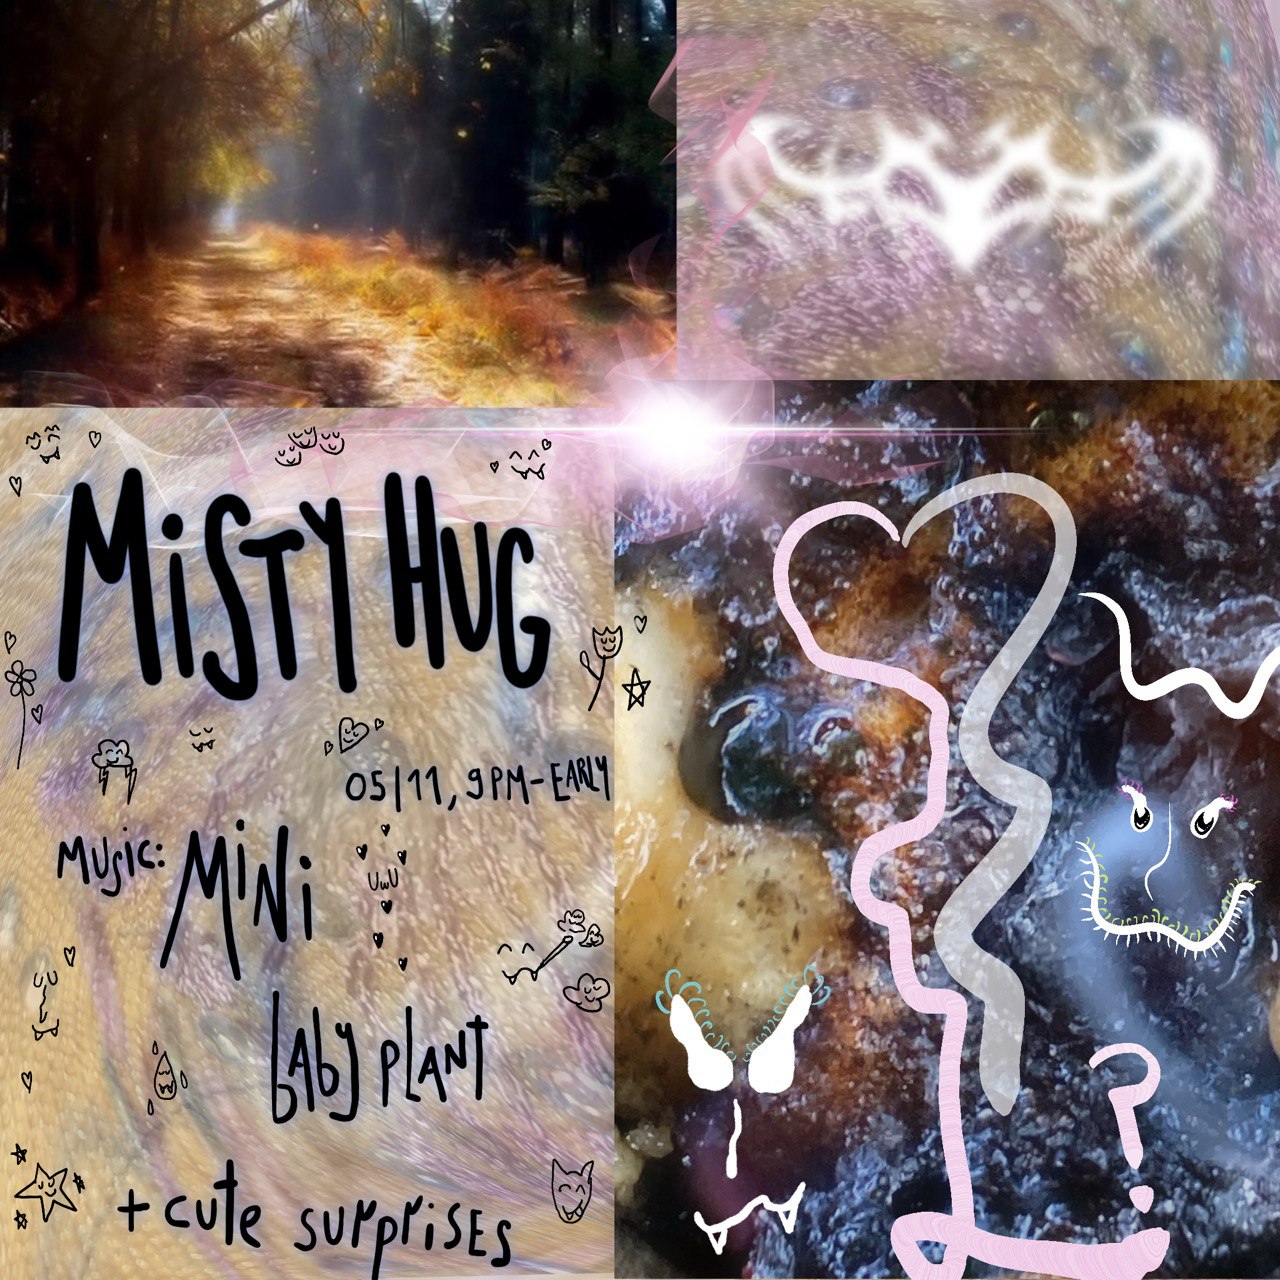 MiSTY HUG
05/11, 9PM-EARLY
Music: MiNi
UwU
bAby plANT
+ cute surprisEs
?